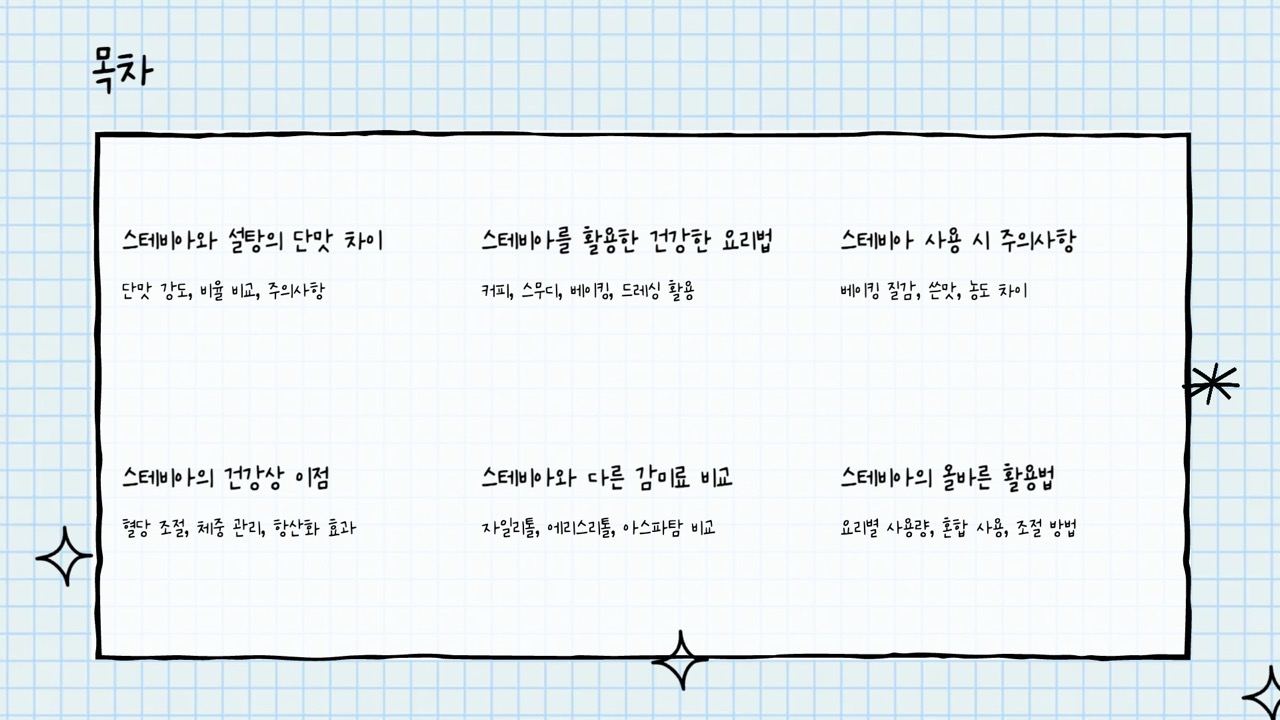 목차
스테비아와 설탕의 단맛 차이
단맛 강도, 비율 비교, 주의사항
스테비아를 활용한 건강한 요리법
커피, 스무디, 베이킹, 드레싱 활용
스테비아 사용 시 주의사항
베이킹 질감, 쓴맛, 농도 차이
스테비아의 건강상 이점
혈당 조절, 체중 관리, 항산화 효과
스테비아와 다른 감미료 비교
자일리톨, 에리스리톨, 아스파탐 비교
스테비아의 올바른 활용법
요리별 사용량, 혼합 사용, 조절 방법